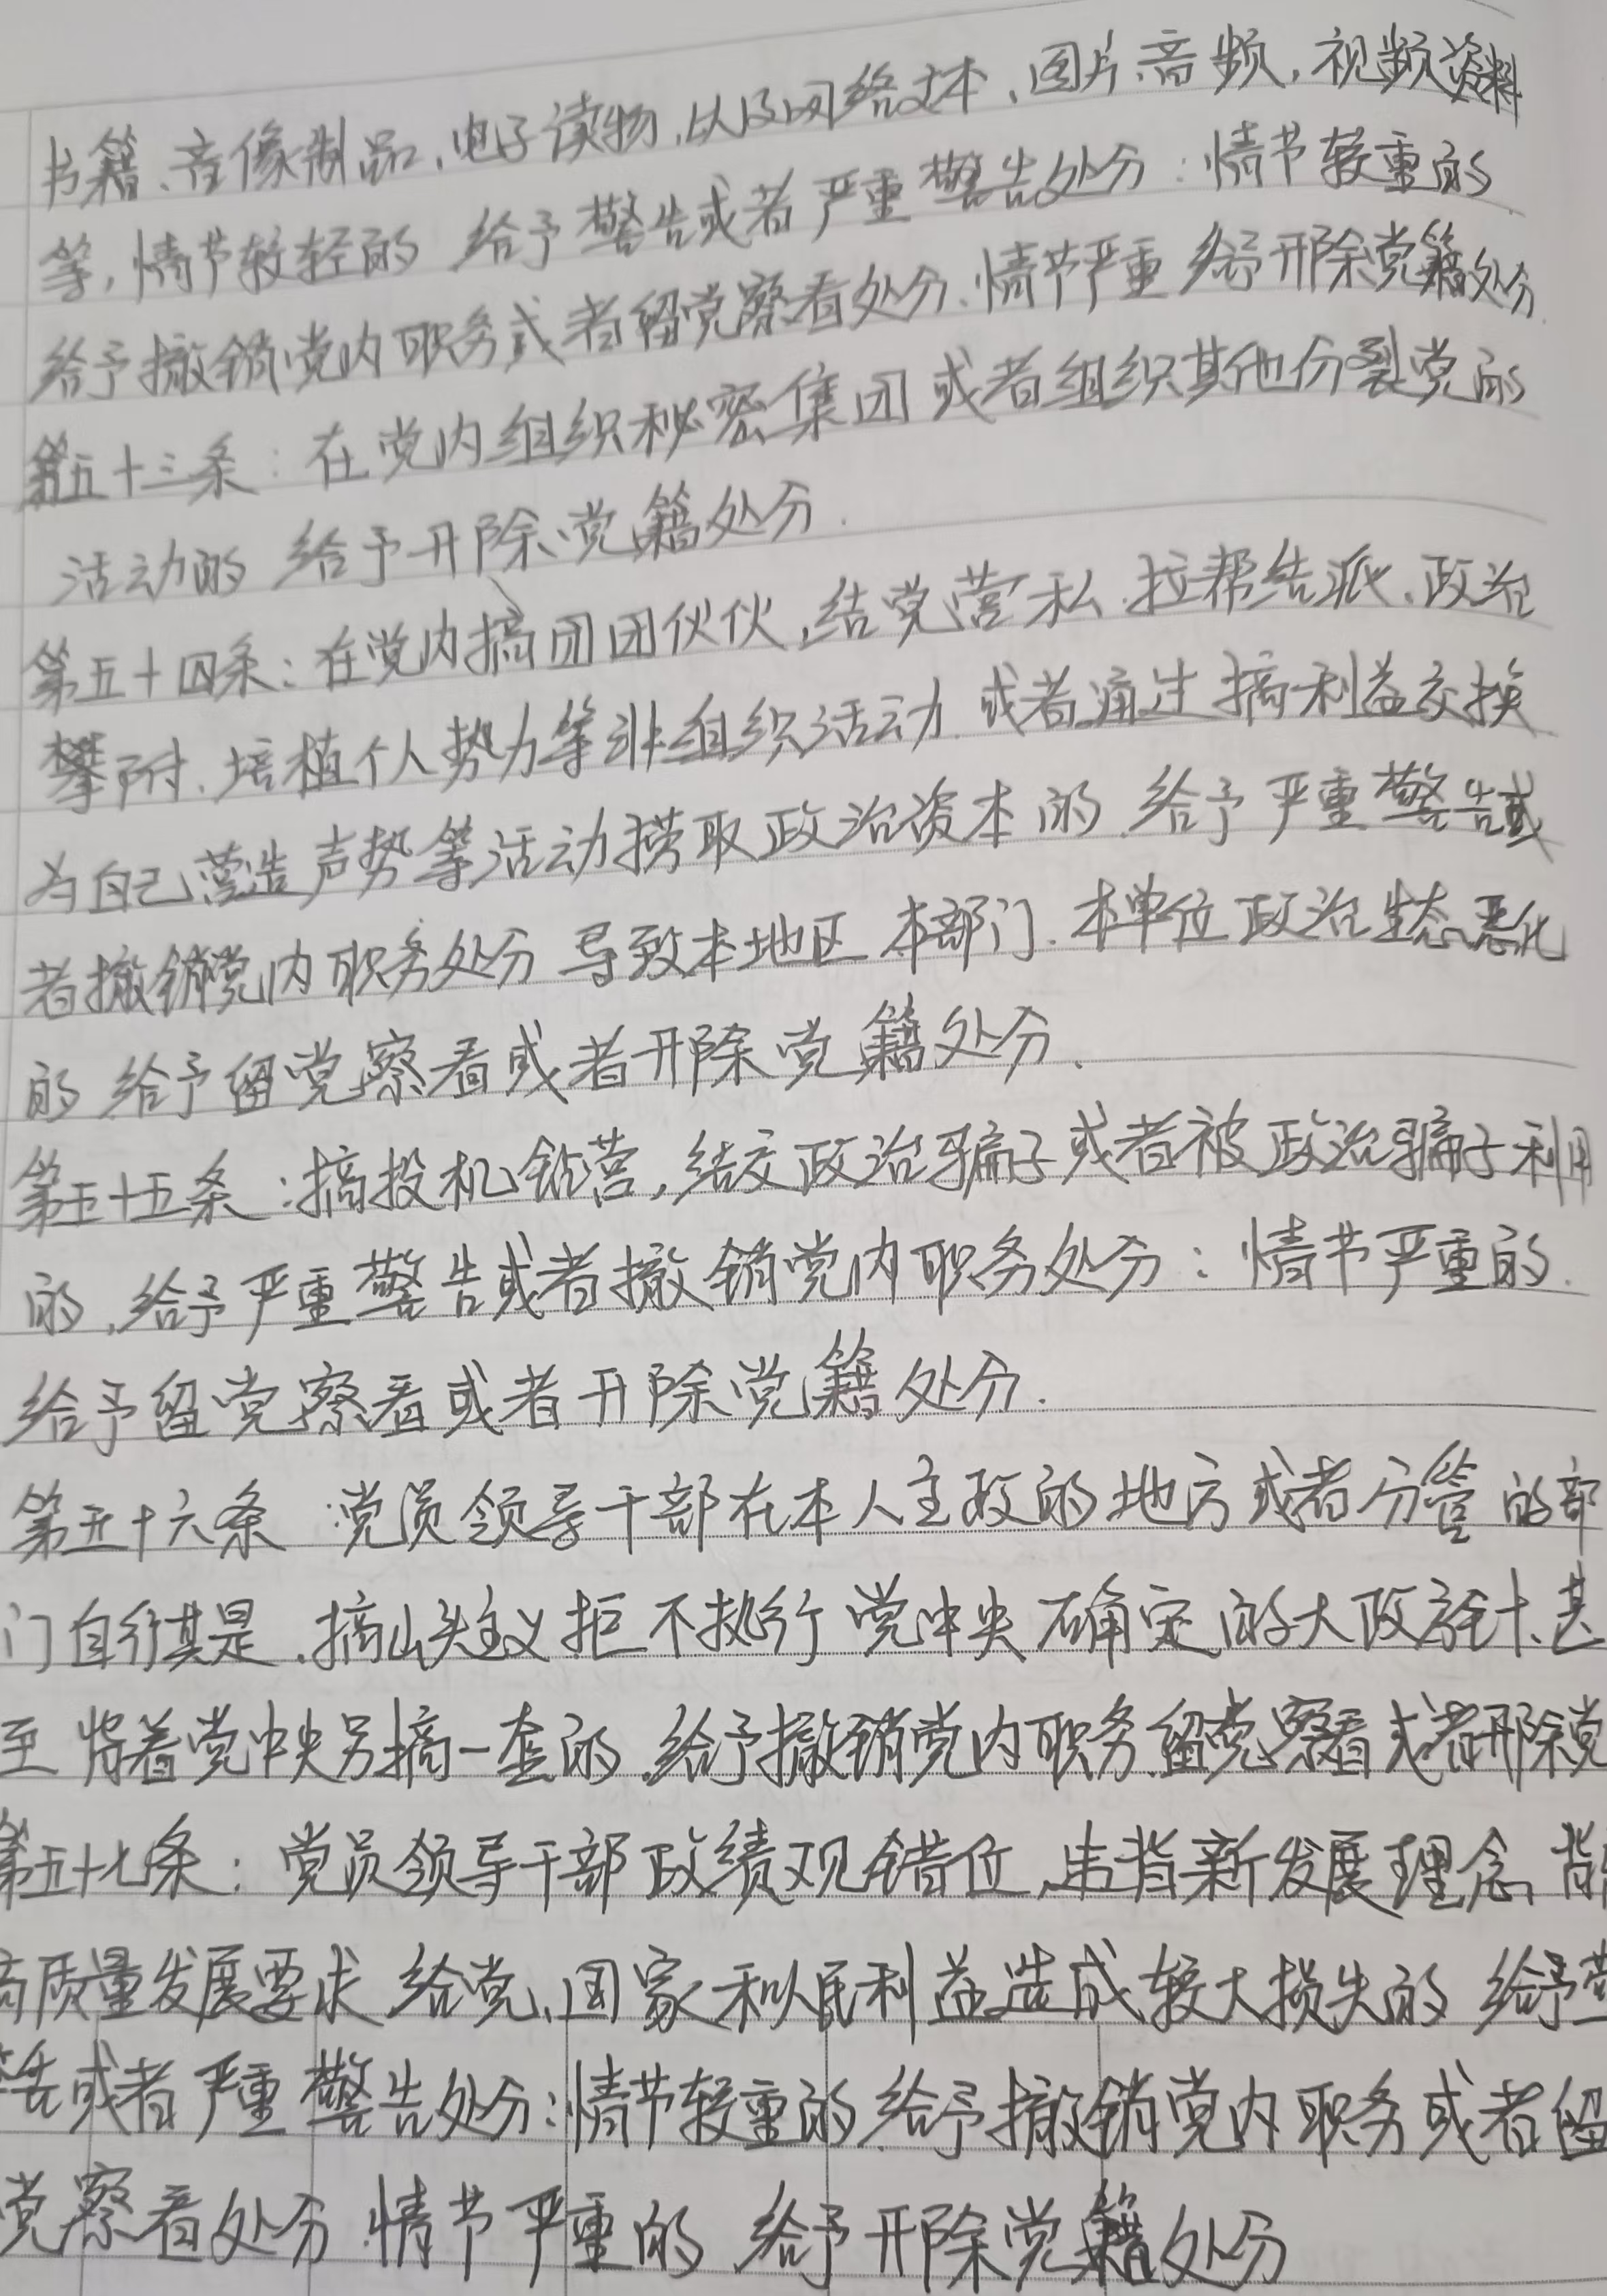 书籍、音像制品、电子读物，以及网络文本、图片、音频，视频资料
等，情节较轻的 给予警告或者严重警告处分：情节较重的
给予撤销党内职务或者留党察看处分、情节严重 给予开除党籍处分.
第五十三条：在党内组织秘密集团或者组织其他份裂党的
活动的 给予开除党籍处分.
第五十四条：在党内搞团团伙伙，结党营私、拉帮结派、政治
攀附、培植个人势力等非组织活动、或者通过搞利益交换
为自己营造声势等活动捞取政治资本的 给予严重警告或
者撤销党内职务处分 导致本地区 本部门、本单位政治生态恶化
的 给予留党察看或者开除党籍处分.
第五十五条：搞投机钻营，结交政治骗子或者被政治骗子利用
的，给予严重警告或者撤销党内职务处分：情节严重的.
给予留党察看或者开除党籍处分.
第五十六条：党员领导干部在本人主政的地方或者分管的部
门自行其是、搞山头主义拒不执行党中央确定的大政方针、甚
至背着党中央另搞一套的，给予撤销党内职务、留党察看或者开除党
第五十七条：党员领导干部政绩观错位，违背新发展理念、背
高质量发展要求 给党、国家和人民利益造成较大损失的 给予警
告或者严重警告处分：情节较重的 给予撤销党内职务或者留
党察看处分 情节严重的 给予开除党籍处分